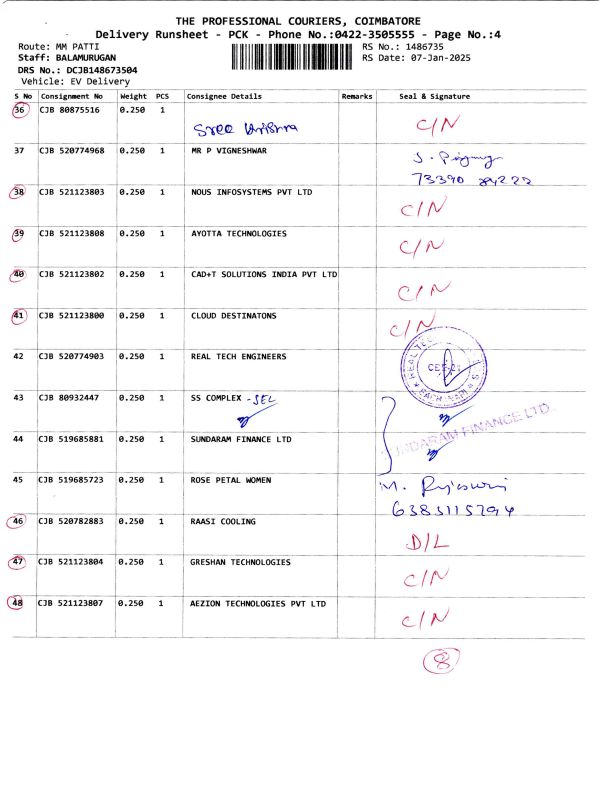 THE PROFESSIONAL COURIERS, COIMBATORE
Delivery Runsheet - PCK - Phone No.:0422-3505555 - Page No.:4
Route: MM PATTI RS No.: 1486735
Staff: BALAMURUGAN RS Date: 07-Jan-2025
DRS No.: DCJB148673504
Vehicle: EV Delivery
S No Consignment No Weight PCS Consignee Details Remarks Seal & Signature
36 CJB 80875516 0.250 1 Sree Krishna C/N
37 CJB 520774968 0.250 1 MR P VIGNESHWAR
73390 84222
38 CJB 521123803 0.250 1 NOUS INFOSYSTEMS PVT LTD C/N
39 CJB 521123808 0.250 1 AYOTTA TECHNOLOGIES C/N
40 CJB 521123802 0.250 1 CAD+T SOLUTIONS INDIA PVT LTD C/N
41 CJB 521123800 0.250 1 CLOUD DESTINATONS C/N
42 CJB 520774903 0.250 1 REAL TECH ENGINEERS
43 CJB 80932447 0.250 1 SS COMPLEX - SEL
44 CJB 519685881 0.250 1 SUNDARAM FINANCE LTD SUNDARAM FINANCE LTD.
45 CJB 519685723 0.250 1 ROSE PETAL WOMEN M.
6383115794
46 CJB 520782883 0.250 1 RAASI COOLING D/L
47 CJB 521123804 0.250 1 GRESHAN TECHNOLOGIES C/N
48 CJB 521123807 0.250 1 AEZION TECHNOLOGIES PVT LTD C/N
8